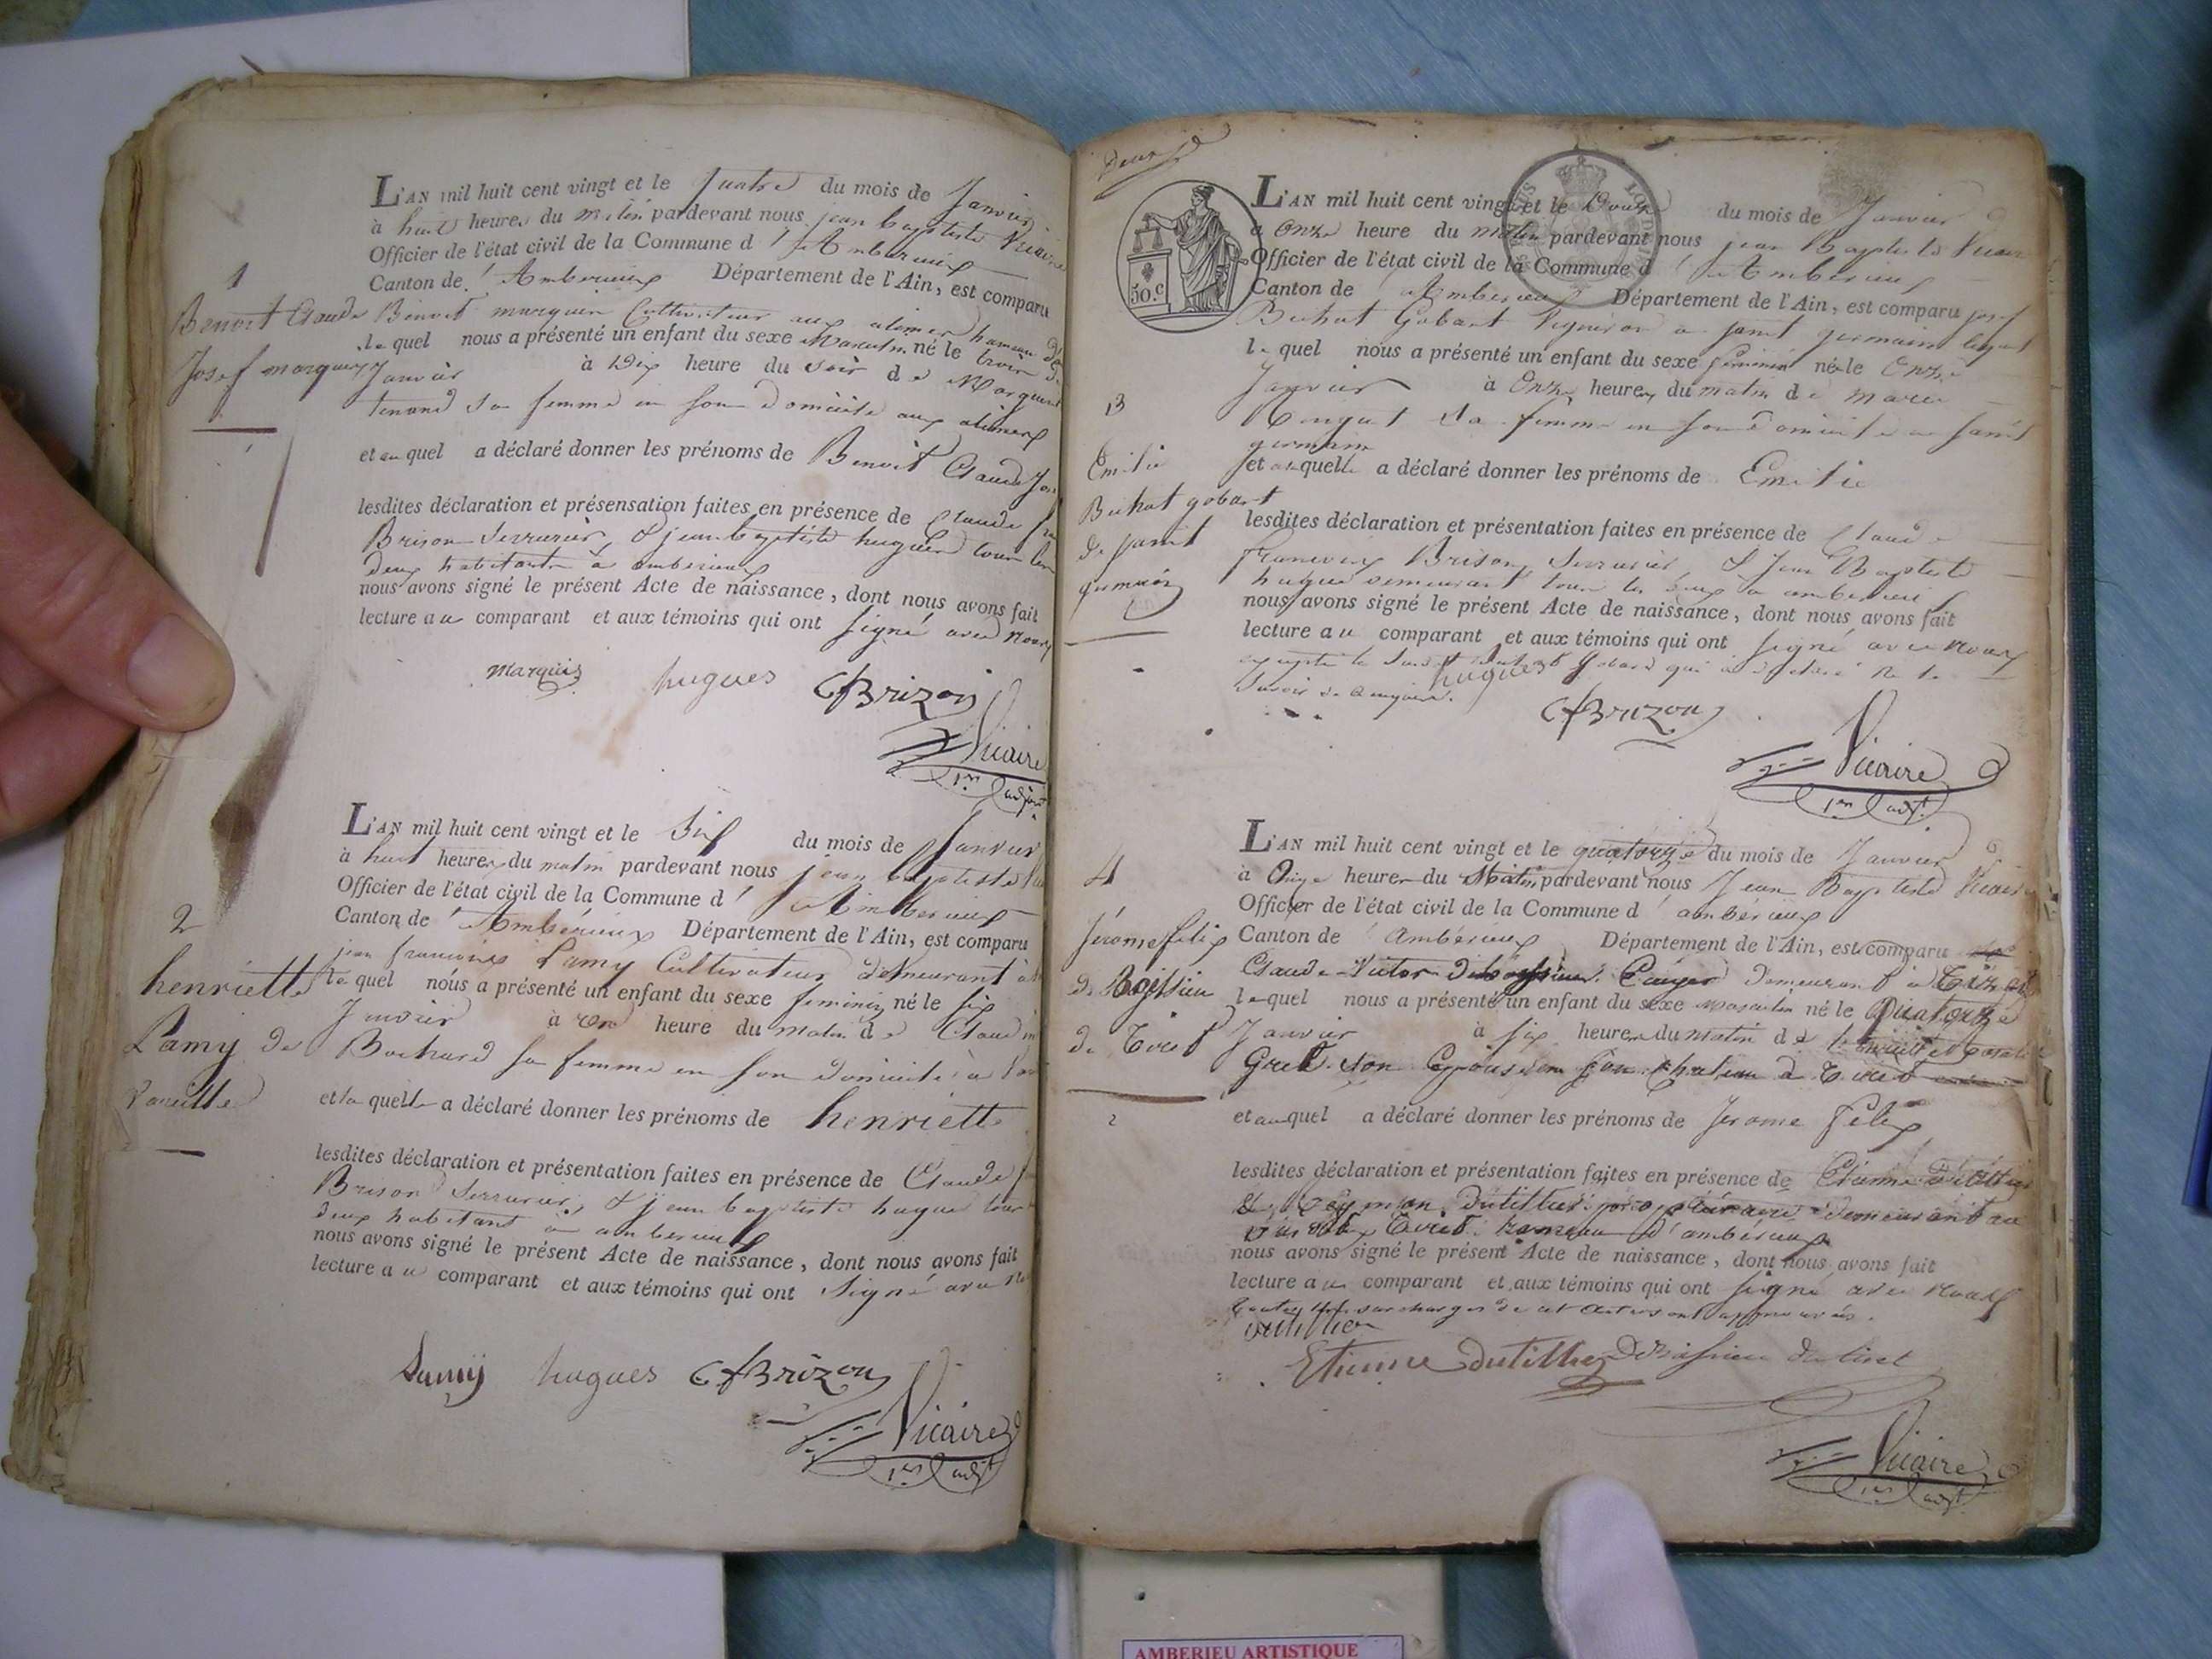 1
Benoit Claude
Josef marquis
L'AN mil huit cent vingt et le quatre du mois de Janvier
à huit heures du matin pardevant nous jean baptiste Vicaire
Officier de l'état civil de la Commune d' Amberieux
Canton de Amberieux Département de l'Ain, est comparu
Benoit marquis Cultivateur aux alimes hameau
lequel nous a présenté un enfant du sexe Masculin né le trois
Janvier à Dix heure du soir de
tenand sa femme en son domicile aux
et auquel a déclaré donner les prénoms de Benoit Claude
lesdites déclaration et présensation faites en présence de Claude
Brison Serrurier, & jean baptiste hugues tous les
deux habitants à amberieux
nous avons signé le présent Acte de naissance, dont nous avons fait
lecture au comparant et aux témoins qui ont signé avec nous
marquis hugues CfBrizon
Vicaire
1er adjt
2
henriette
Lamy de
Vareille
L'AN mil huit cent vingt et le Six du mois de Janvier
à huit heures du matin pardevant nous jean baptiste
Officier de l'état civil de la Commune d' Amberieux
Canton de Amberieux Département de l'Ain, est comparu
jean francois Lamy Cultivateur demeurant à
lequel nous a présenté un enfant du sexe feminin né le six
Janvier à une heure du matin de
Bochard sa femme en son domicile à
et laquelle a déclaré donner les prénoms de henriette
lesdites déclaration et présentation faites en présence de Claude
Brison Serrurier, & jean baptiste hugues tous
deux habitant à amberieux
nous avons signé le présent Acte de naissance, dont nous avons fait
lecture au comparant et aux témoins qui ont signé avec
Lamy hugues CfBrizon
Vicaire
1er adjt
Deux
50.c
3
Emilie
Buhat gobart
de saint
germain
L'AN mil huit cent vingt et le Douze du mois de Janvier
à onze heure du matin pardevant nous jean Baptiste Vicaire
Officier de l'état civil de la Commune d' Amberieux
Canton de Amberieux Département de l'Ain, est comparu josef
Buhat Gobart Vigneron a saint germain
lequel nous a présenté un enfant du sexe féminin né le Onze
Janvier à Onze heures du matin de marie
sa femme en son domicile a saint
germain
et a quelle a déclaré donner les prénoms de Emilie
lesdites déclaration et présentation faites en présence de Claude
francois Brison, Serrurier, & Jean Baptiste
hugues demeurant tous les deux a amberieux
nous avons signé le présent Acte de naissance, dont nous avons fait
lecture au comparant et aux témoins qui ont signé avec nous
excepté le qui a declaré ne le
savoir
hugues
CfBrizon
Vicaire
1er adjt
4
Jérome félix
de Boissieu
de Tiret
L'AN mil huit cent vingt et le quatorze du mois de Janvier
à Onze heures du Matin pardevant nous Jean Baptiste Vicaire
Officier de l'état civil de la Commune d' ambérieux
Canton de Ambérieux Département de l'Ain, est comparu
Claude Victor demeurant à Tiret
lequel nous a présenté un enfant du sexe masculin né le Quatorze
Janvier à six heures du matin de
son Epouse en son chateau de Tiret
et auquel a déclaré donner les prénoms de Jerome Félix
lesdites déclaration et présentation faites en présence de Etienne Dutillier
Dutillier propriétaire demeurant au
Tiret hameau d'ambérieux
nous avons signé le présent Acte de naissance, dont nous avons fait
lecture au comparant et aux témoins qui ont signé avec nous
toutes les surcharges de cet acte sont approuvées.
Dutillier
Etienne dutillier DeBoissieu du tiret
Vicaire
1er adjt
AMBERIEU ARTISTIQUE